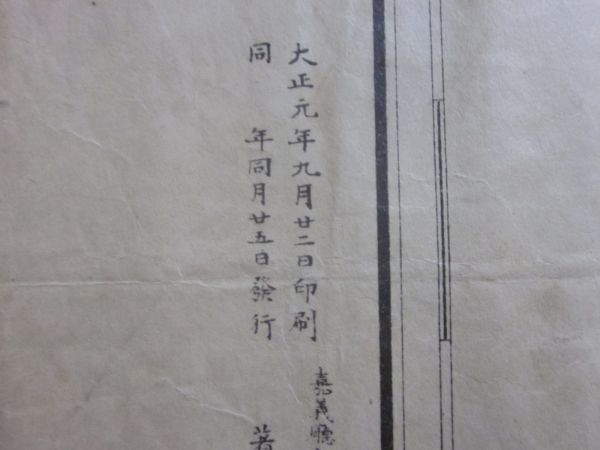 大正元年九月廿二日印刷
同　年同月廿五日發行
嘉義廳
著